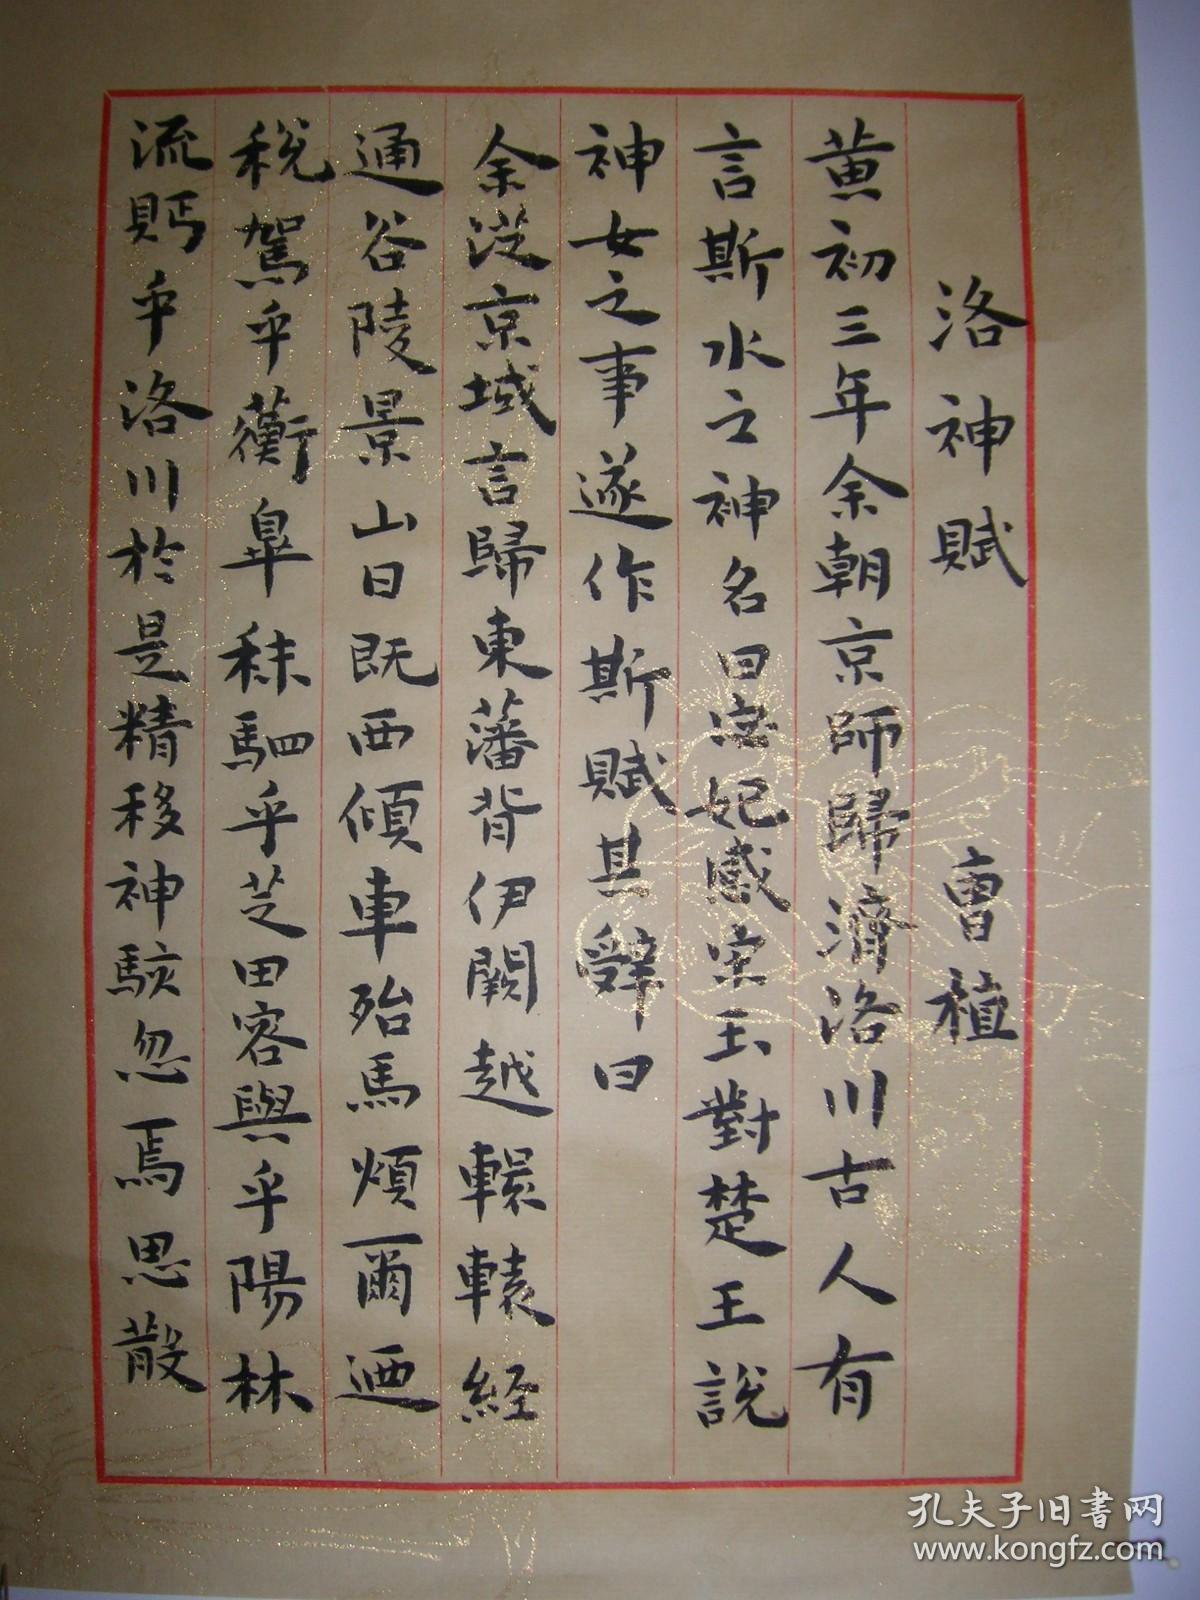 洛神賦 曹植
黄初三年余朝京師歸濟洛川古人有
言斯水之神名曰宓妃感宋玉對楚王說
神女之事遂作斯賦其辭曰
余從京域言歸東藩背伊闕越轘轅經
通谷陵景山日既西傾車殆馬煩爾迺
稅駕乎蘅皋秣駟乎芝田容與乎陽林
流眄乎洛川於是精移神駭忽焉思散
孔夫子旧书网
www.kongfz.com